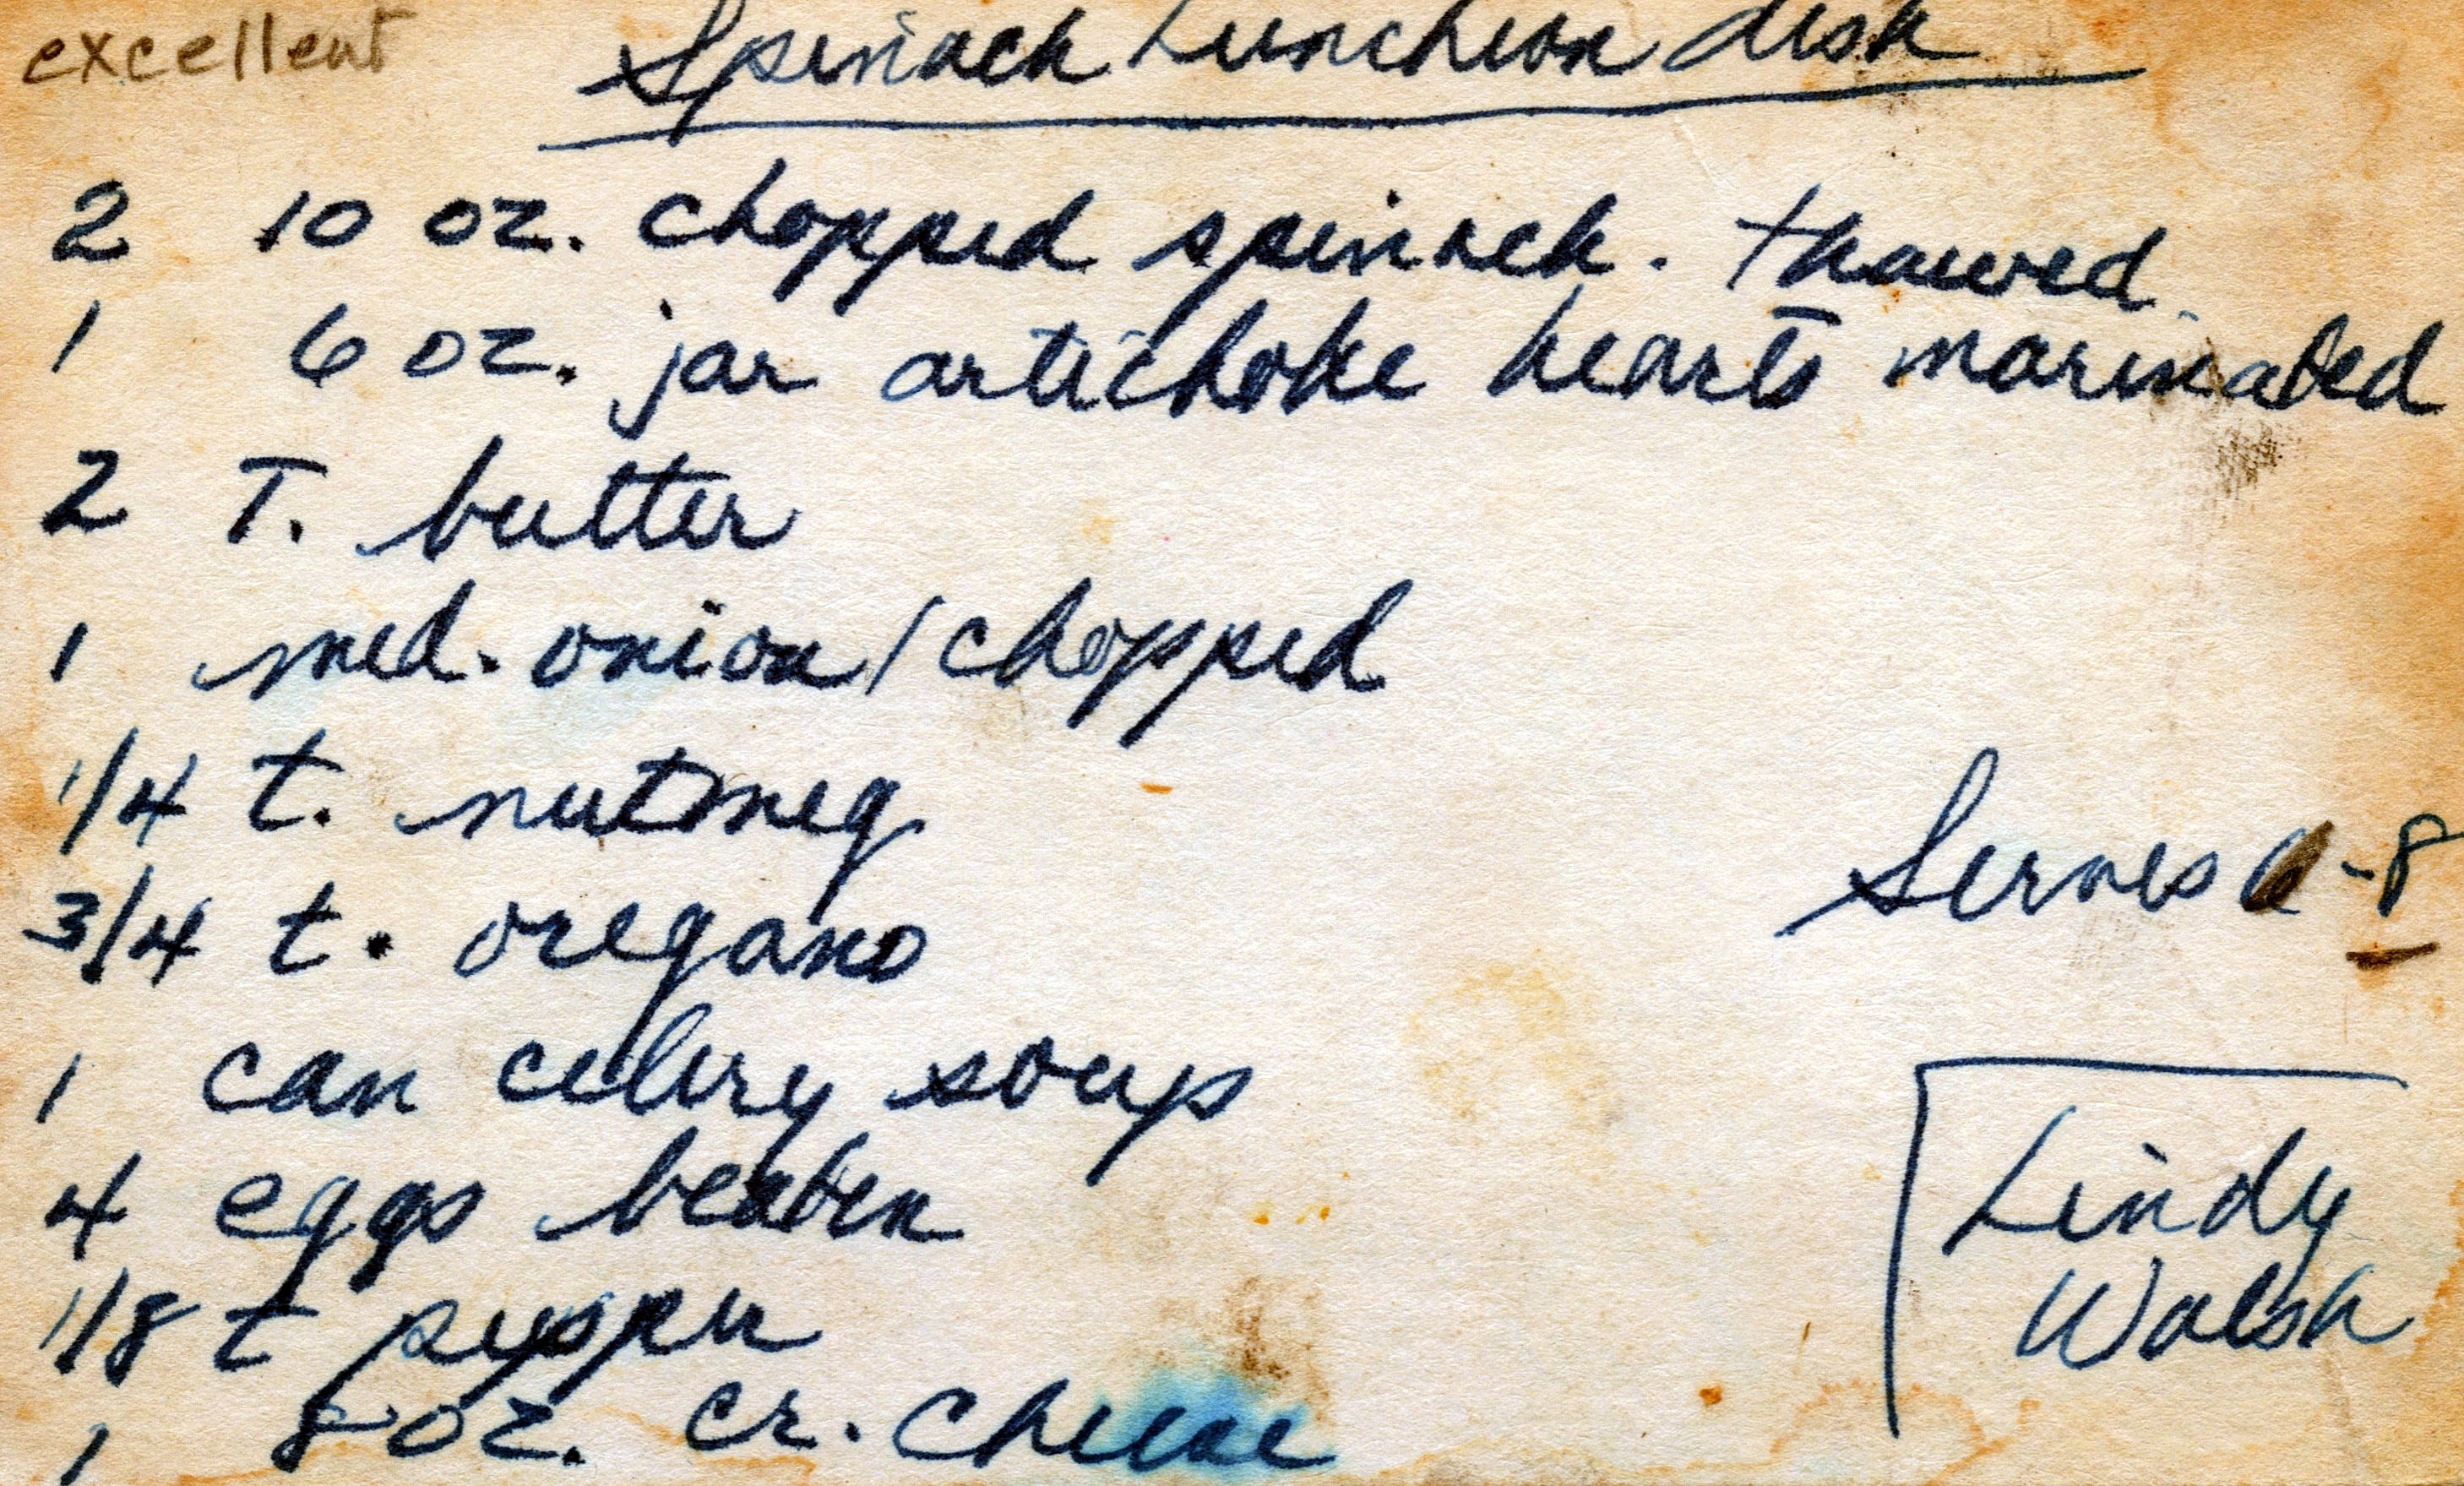 excellent
Spinach Luncheon dish
2 10 oz. chopped spinach. thawed
1 6 oz. jar artichoke hearts marinated
2 T. butter
1 med. onion/chopped
1/4 t. nutmeg
3/4 t. oregano
Serves 6-8
1 can celery soup
4 eggs beaten
1/8 t pepper
1 8 oz. cr. cheese
Lindy
Walsh